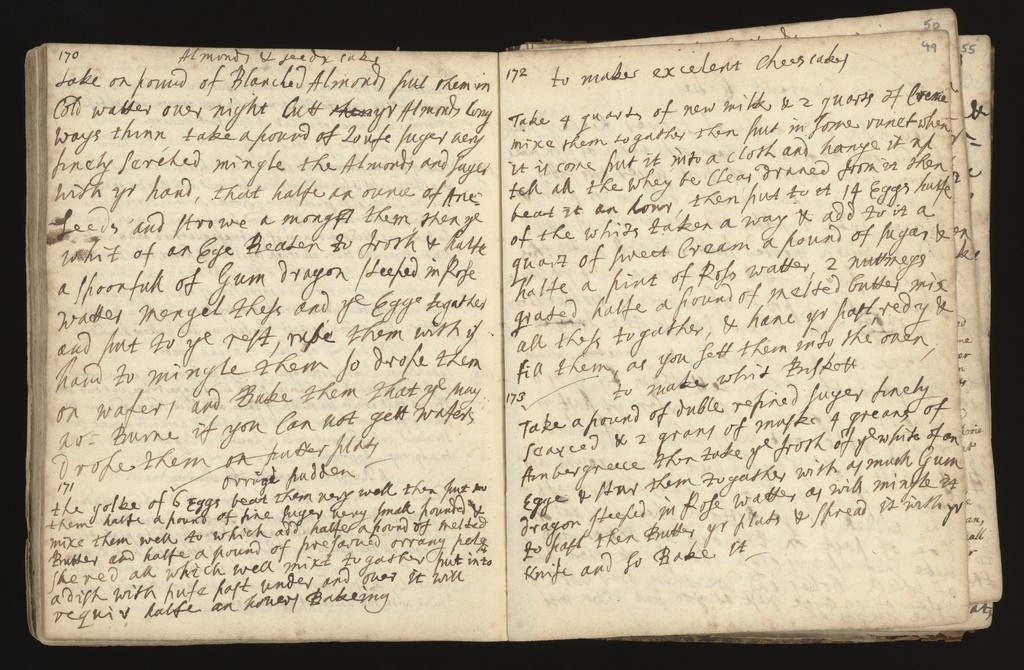 170
Almonds & seeds cake
Take on pound of Blanched Almonds put them in
Cold watter over night Cutt them yr Almonds long
ways thinn take a pound of Loufe suger very
finely serched mingle the Almonds and suger
with yr hand, that halfe an ounce of Ane-
seeds and strowe a mongst them then ye
whit of an Ege Beaten to frosh & halfe
a spoonfull of Gum dragon steeped in Rose
watter mengel thess and ye Egge togather
and put to ye rest, them with yr
hand to mingle them so drope them
on wafers and Bake them that ye may
not Burne if you Can not gett wafers
Drope them on putter plats
171
orring pudden
the yolke of 6 Eggs beat them very well then put to
them halfe a pound of fine suger very small pounded &
mixe them well to which add halfe a pound of melted
Butter and halfe a pound of presarved orrang pele
shered all which well mixt togather put into
a dish with pufe past under and over it will
requir halfe an houers Bakeing
50
49
55
172
to makes excelent Cheescakes
Take 4 quarts of new milk & 2 quarts of Creme
mixe them to gather then put in some runet when
it is come put it into a cloth and hange it up
tell all the whey be Clear draned from it then
beat it an hour, then put to it 14 Eggs halfe
of the whits taken a way & add to it a
quart of sweet Cream a pound of sugar &
halfe a pint of Ross watter, 2 nuttmegs
grated halfe a pound of melted butter mix
all thess to gather, & have yr past redy &
fill them as you sett them into the oven
173
to make whit Biskett
Take a pound of duble refined suger finely
searced & 2 grans of muske 4 greans of
Ambergreece then take ye frosh of ye white of an
Egge & stur them to gather with as much Gum
dragon steeped in Rose watter as will mingle it
to past then Butter yr plats & spread it with yr
Knife and so Bake it